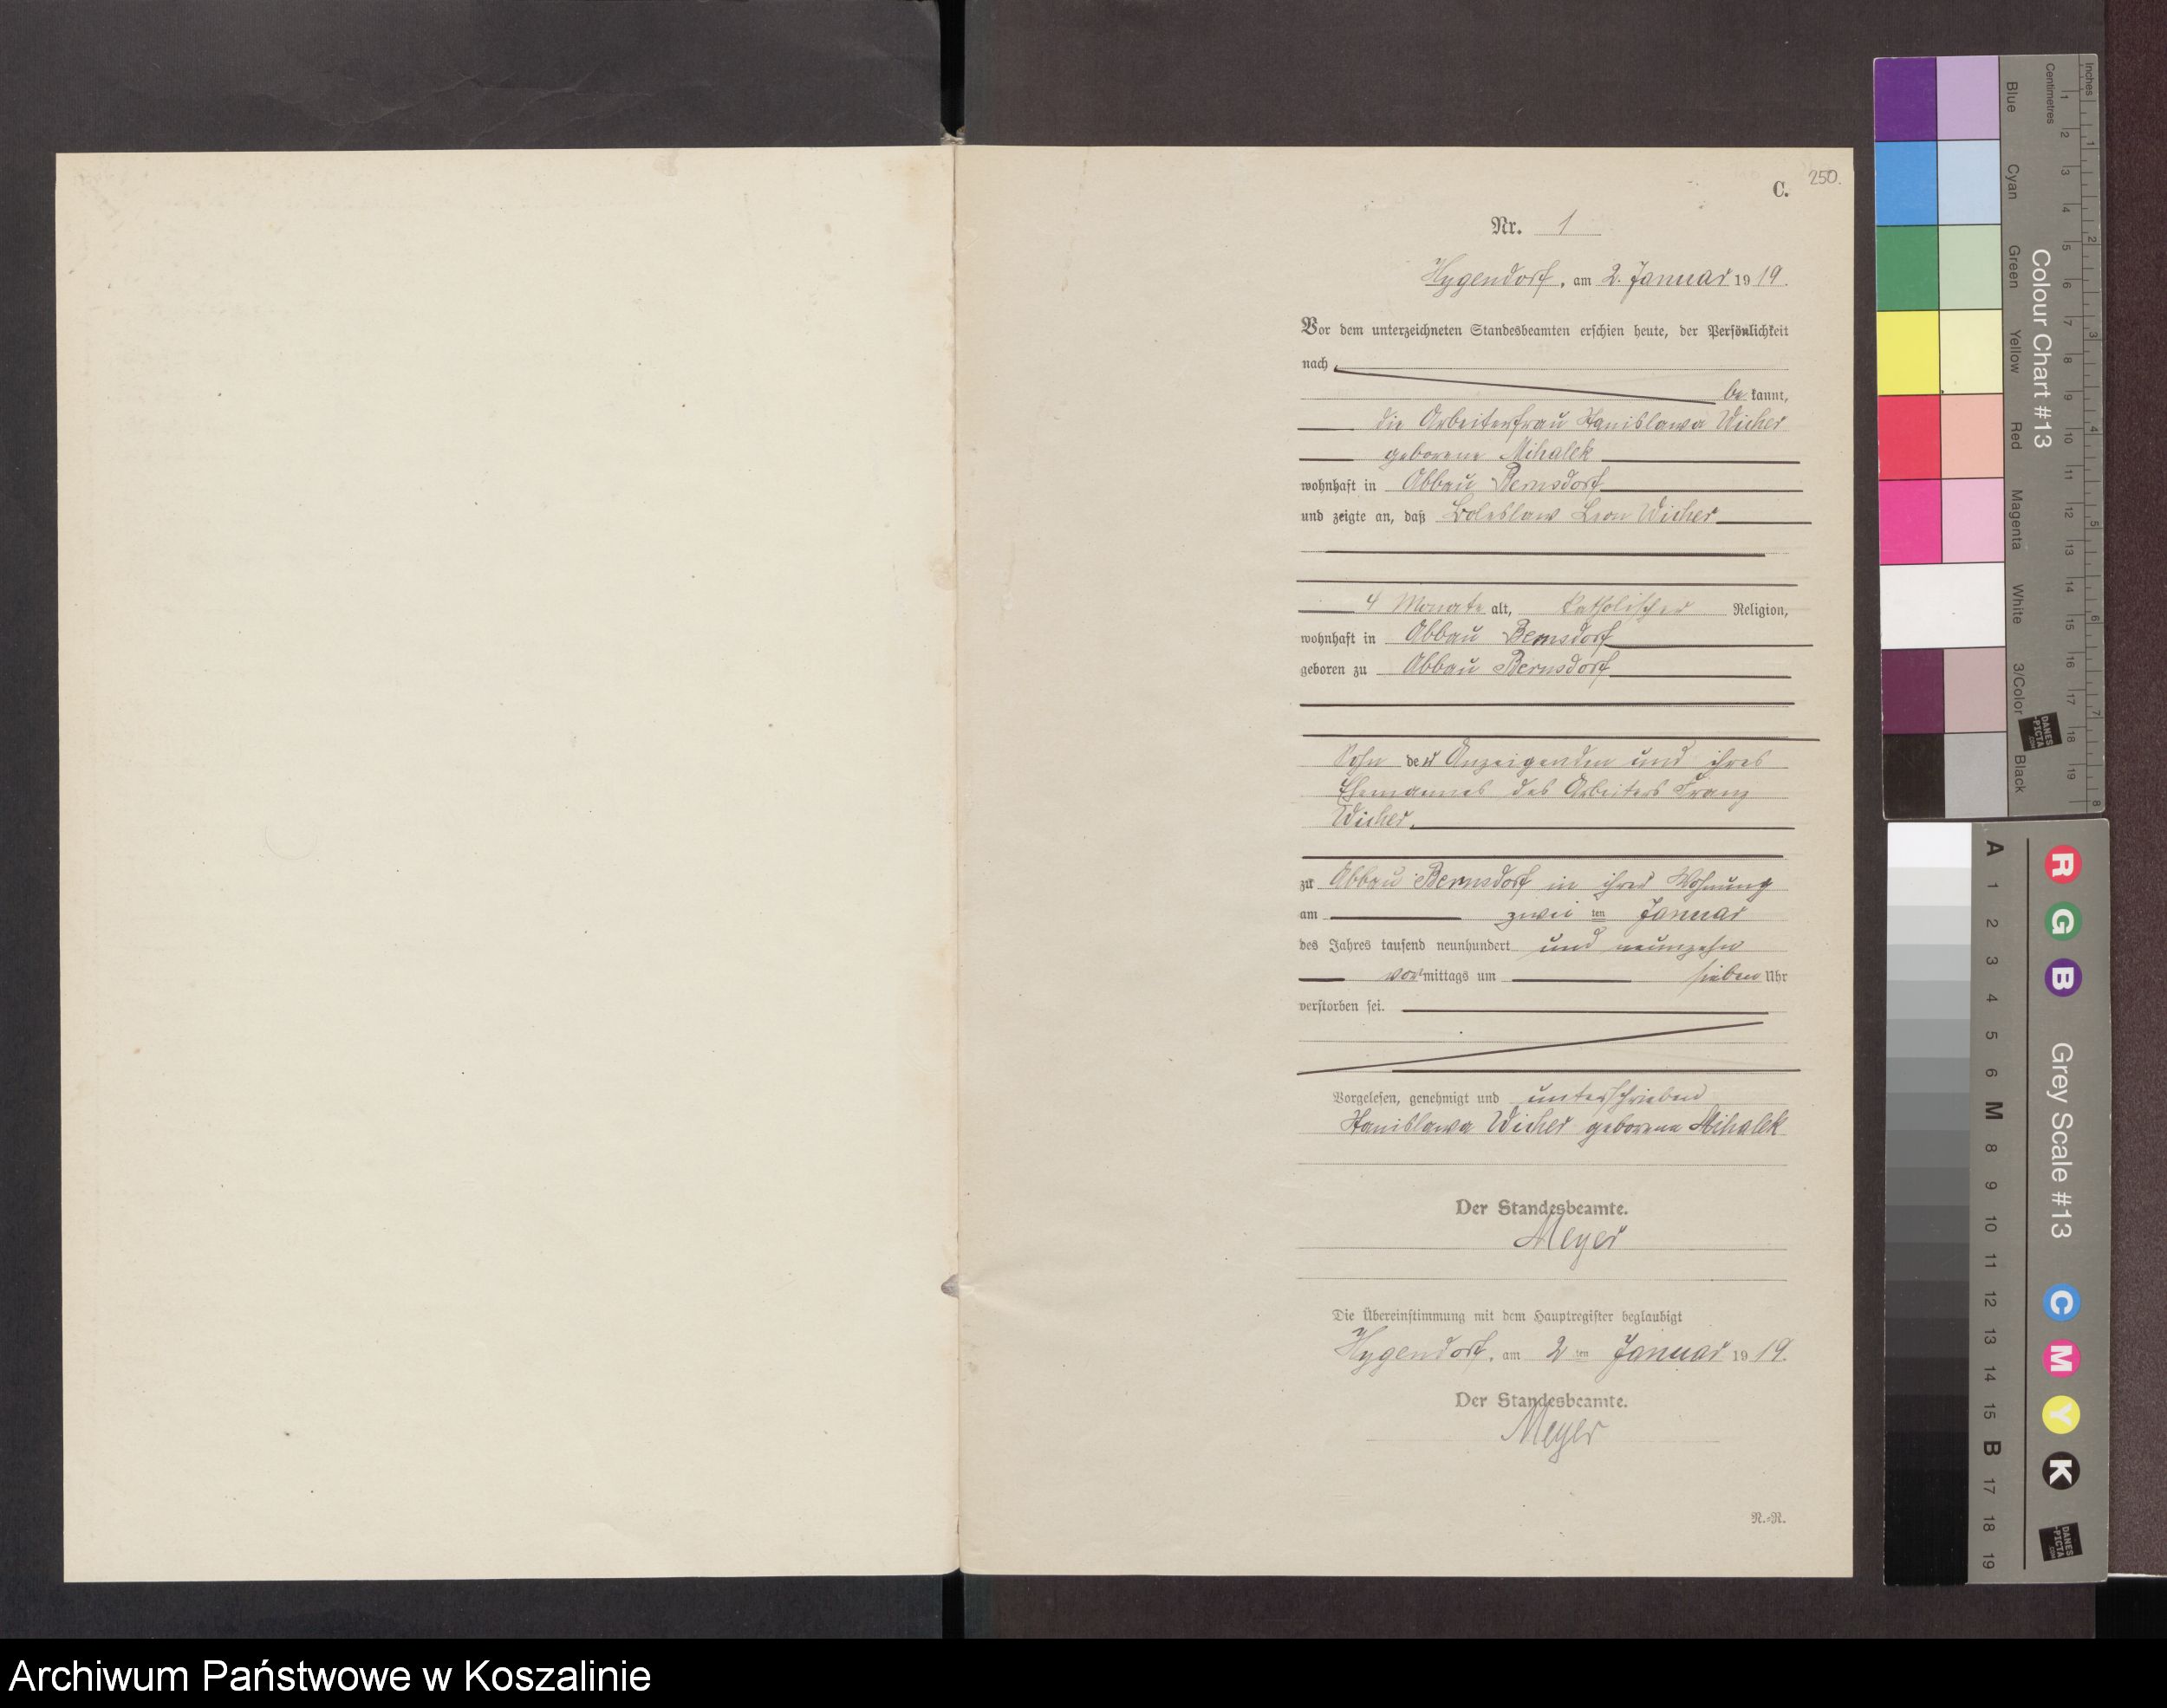 250.
C.
Nr. 1
Hygendorf, am 2. Januar 1919.
Vor dem unterzeichneten Standesbeamten erschien heute, der Persönlichkeit
nach
be kannt,
die Arbeiterfrau Stanislawa Wicher
geborene Mihalek
wohnhaft in Abbau Bernsdorf
und zeigte an, daß Boleslaw Leon Wicher
4 Monate alt, katholischer Religion,
wohnhaft in Abbau Bernsdorf
geboren zu Abbau Bernsdorf
Sohn der Anzeigenden und ihres
Ehemannes des Arbeiters Franz
Wicher.
zu Abbau Bernsdorf in ihrer Wohnung
am zwei ten Januar
des Jahres tausend neunhundert und neunzehn
vor mittags um sieben Uhr
verstorben sei.
Vorgelesen, genehmigt und unterschrieben
Stanislawa Wicher geborene Mihalek
Der Standesbeamte.
Meyer
Die Übereinstimmung mit dem Hauptregister beglaubigt
Hygendorf, am 2 ten Januar 1919.
Der Standesbeamte.
Meyer
R.=R.
Inches
Centimetres
1 2 3 4 5 6 7 8 9 10 11 12 13 14 15 16 17 18 19
1 2 3 4 5 6 7 8
Colour Chart #13
Blue Cyan Green Yellow Red Magenta White 3/Color Black
DANES
-PICTA
.COM
A 1 2 3 4 5 6 M 8 9 10 11 12 13 14 15 B 17 18 19
R G B Grey Scale #13 C M Y K
DANES
-PICTA
.COM
Archiwum Państwowe w Koszalinie